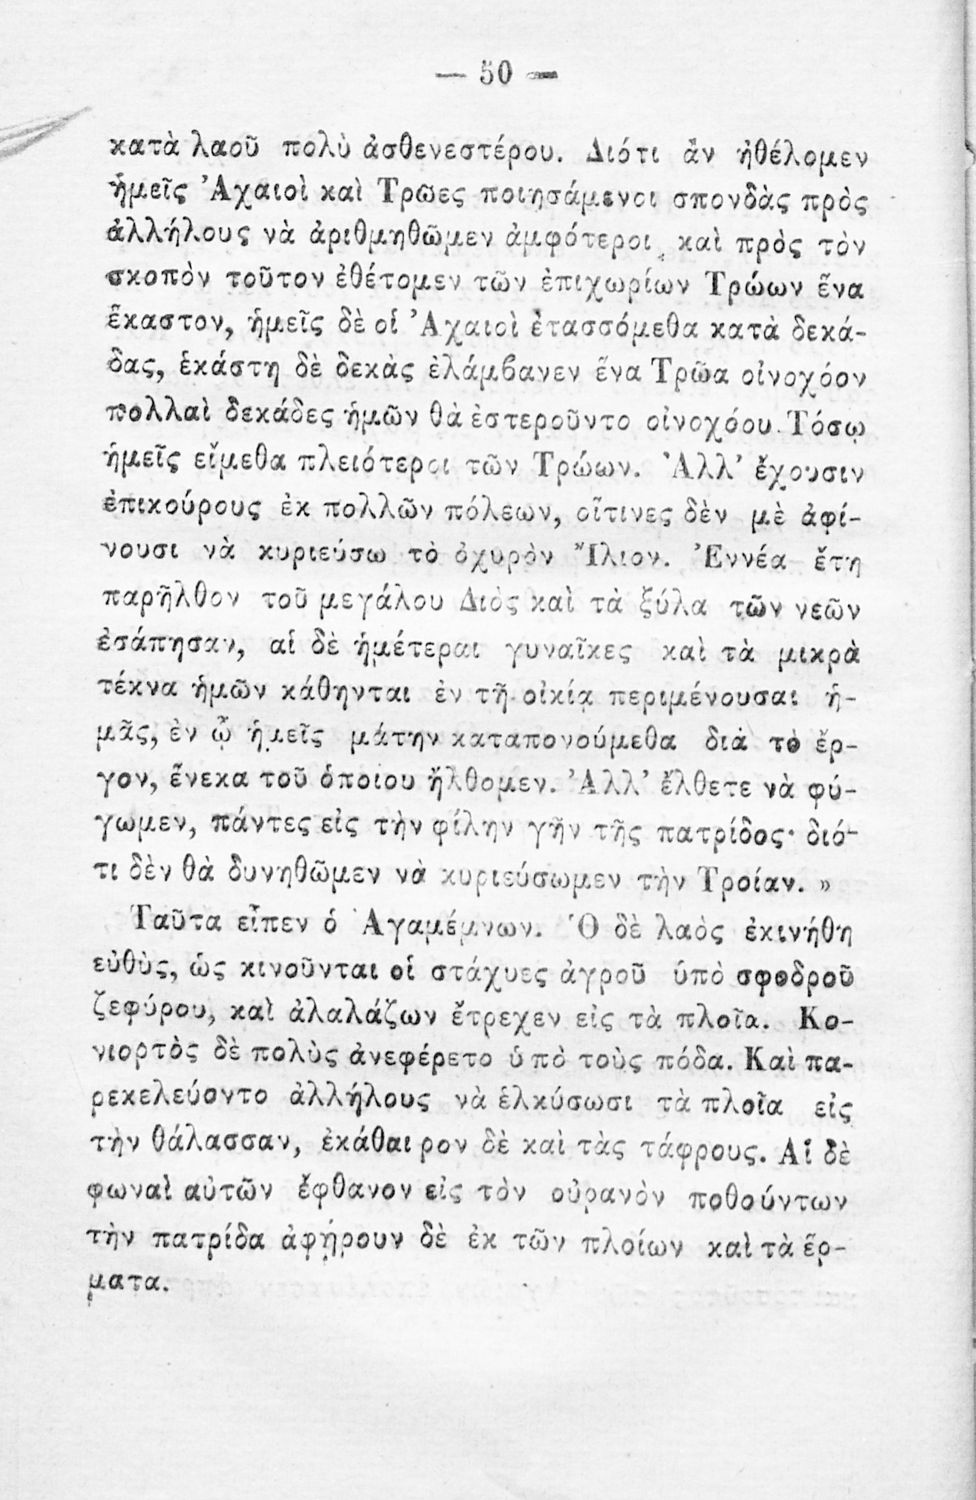 — 50 —
κατὰ λαοῦ πολὺ ἀσθενεστέρου. Διότι ἂν ἠθέλομεν
ἡμεῖς Ἀχαιοὶ καὶ Τρῶες ποιησάμενοι σπονδὰς πρὸς
ἀλλήλους νὰ ἀριθμηθῶμεν ἀμφότεροι, καὶ πρὸς τὸν
σκοπὸν τοῦτον ἐθέτομεν τῶν ἐπιχωρίων Τρώων ἕνα
ἕκαστον, ἡμεῖς δὲ οἱ Ἀχαιοὶ ἐτασσόμεθα κατὰ δεκά-
δας, ἑκάστη δὲ δεκὰς ἐλάμβανεν ἕνα Τρῶα οἰνοχόον
πολλαὶ δεκάδες ἡμῶν θὰ ἐστεροῦντο οἰνοχόου. Τόσῳ
ἡμεῖς εἴμεθα πλειότεροι τῶν Τρώων. Ἀλλ’ ἔχουσιν
ἐπικούρους ἐκ πολλῶν πόλεων, οἵτινες δὲν μὲ ἀφί-
νουσι νὰ κυριεύσω τὸ ὀχυρὸν Ἴλιον. Ἐννέα ἔτη
παρῆλθον τοῦ μεγάλου Διὸς καὶ τὰ ξύλα τῶν νεῶν
ἐσάπησαν, αἱ δὲ ἡμέτεραι γυναῖκες καὶ τὰ μικρὰ
τέκνα ἡμῶν κάθηνται ἐν τῇ οἰκίᾳ περιμένουσαι ἡ-
μᾶς, ἐν ᾧ ἡμεῖς μάτην καταπονούμεθα διὰ τὸ ἔρ-
γον, ἕνεκα τοῦ ὁποίου ἤλθομεν. Ἀλλ’ ἔλθετε νὰ φύ-
γωμεν, πάντες εἰς τὴν φίλην γῆν τῆς πατρίδος· διό-
τι δὲν θὰ δυνηθῶμεν νὰ κυριεύσωμεν τὴν Τροίαν. »
Ταῦτα εἶπεν ὁ Ἀγαμέμνων. Ὁ δὲ λαὸς ἐκινήθη
εὐθὺς, ὡς κινοῦνται οἱ στάχυες ἀγροῦ ὑπὸ σφοδροῦ
ζεφύρου, καὶ ἀλαλάζων ἔτρεχεν εἰς τὰ πλοῖα. Κο-
νιορτὸς δὲ πολὺς ἀνεφέρετο ὑπὸ τοὺς πόδα. Καὶ πα-
ρεκελεύοντο ἀλλήλους νὰ ἑλκύσωσι τὰ πλοῖα εἰς
τὴν θάλασσαν, ἐκάθαιρον δὲ καὶ τὰς τάφρους. Αἱ δὲ
φωναὶ αὐτῶν ἔφθανον εἰς τὸν οὐρανὸν ποθούντων
τὴν πατρίδα ἀφῄρουν δὲ ἐκ τῶν πλοίων καὶ τὰ ἕρ-
ματα.